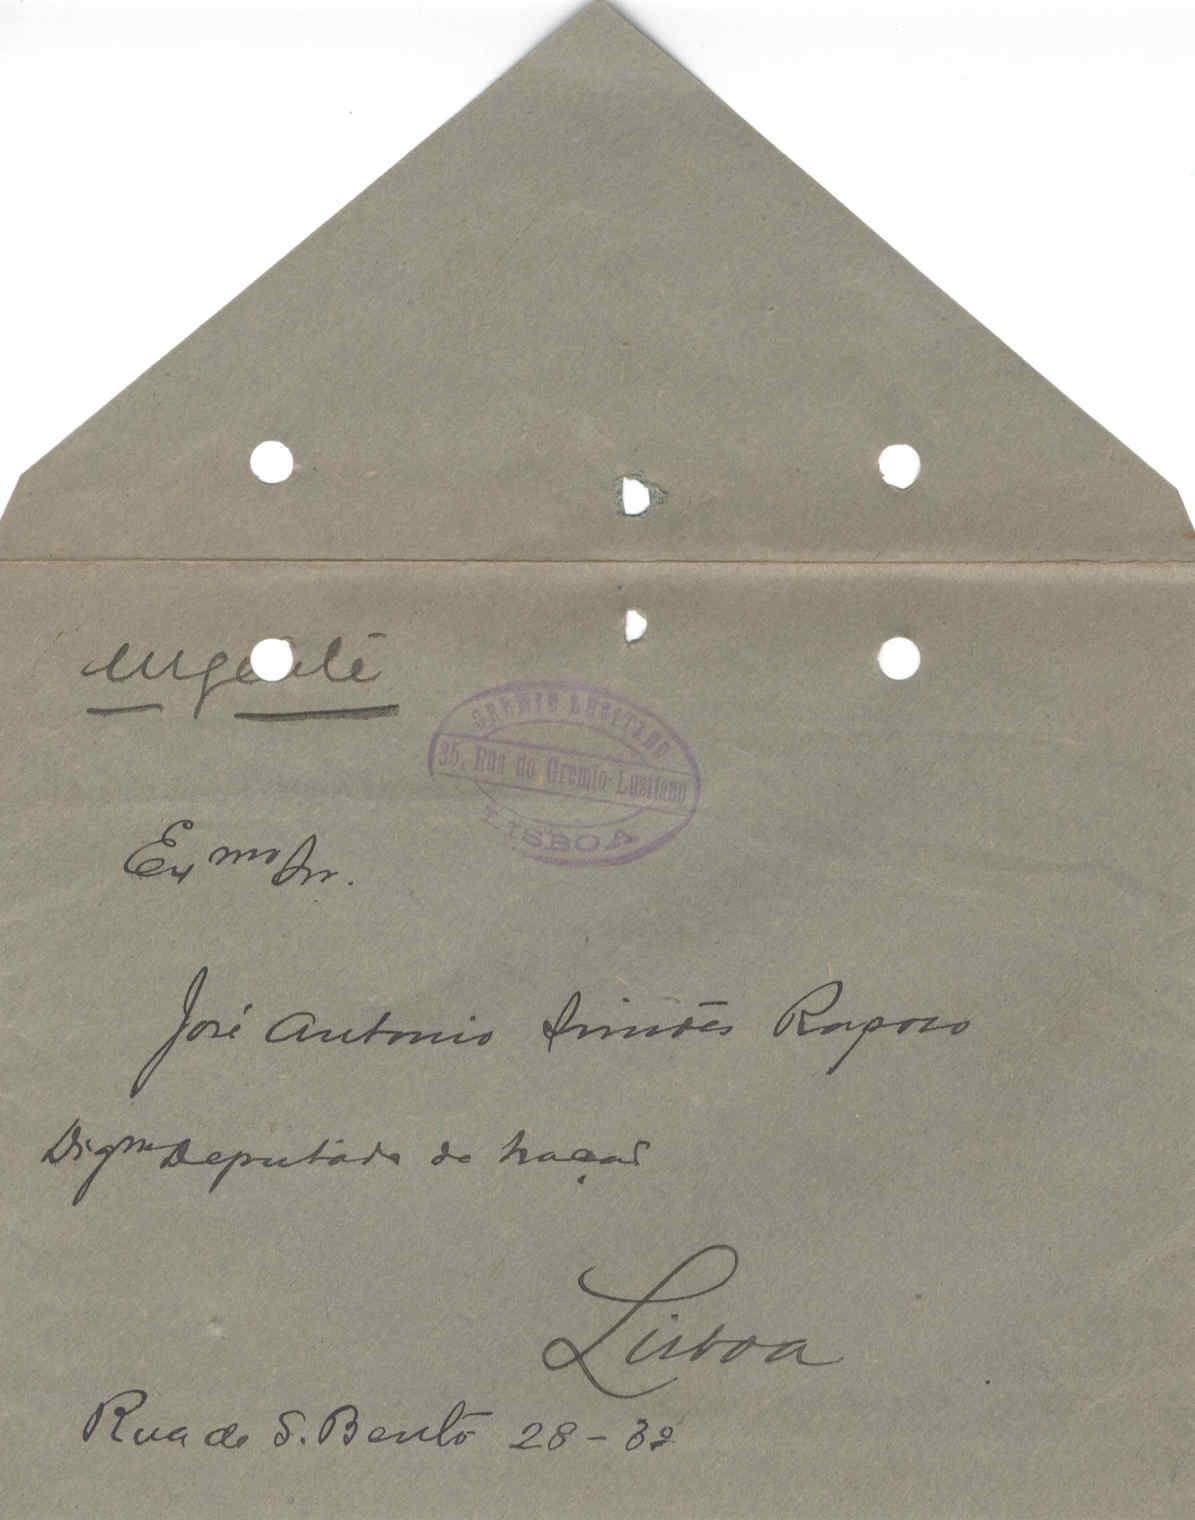 urgente
GREMIO LUSITANO
35, Rua do Gremio Lusitano
LISBOA
Ex.mo Sr.
José Antonio Simões Raposo
Dignmo Deputado da Nação
Lisboa
Rua de S. Bento 28-3º